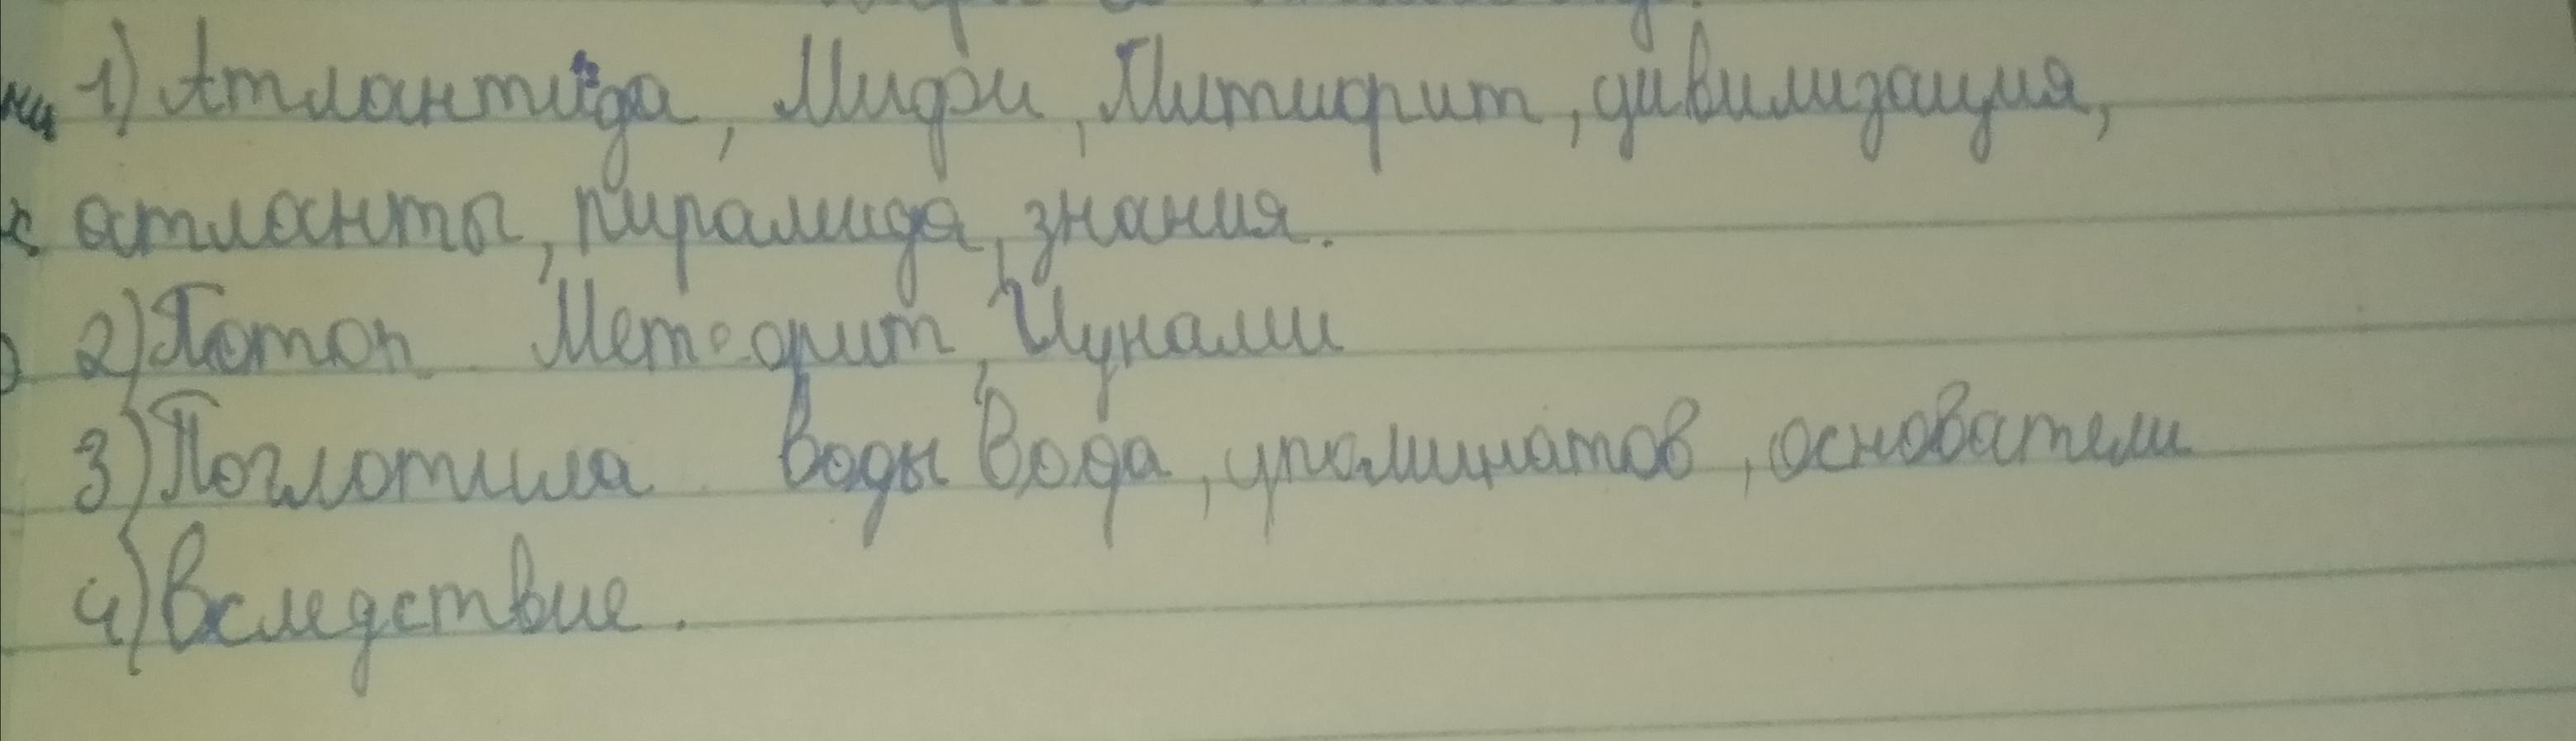 1) Атлантида, Мифы, Митифит, цивилизация,
атланты, пирамида, знания.
2) Потоп Метеорит, Цунами
3) Поглотила воды Вода, упоминатов, основатели
4) Вследствие.